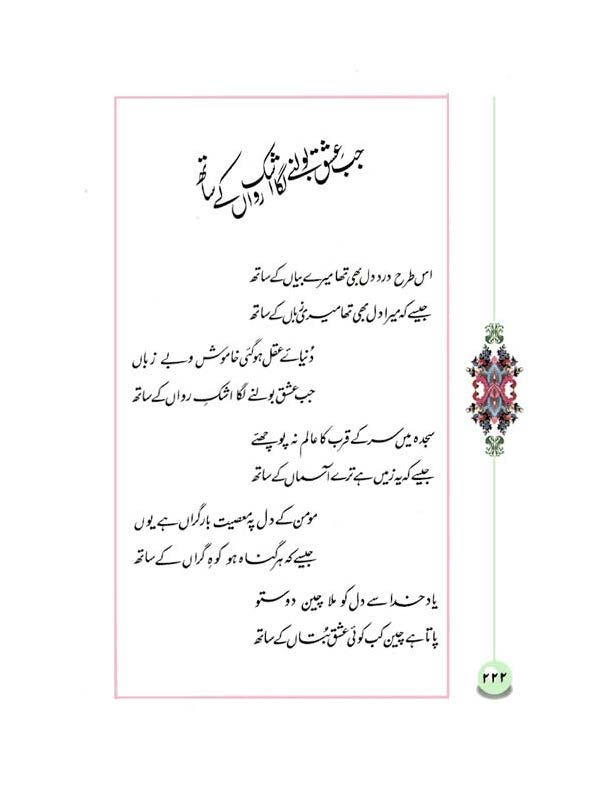 جب عشق بولنے لگا اشکِ رواں کے ساتھ
اس طرح دردِ دل بھی تھا میرے بیاں کے ساتھ
جیسے کہ میرا دل بھی تھا میری زباں کے ساتھ
دُنیائے عقل ہوگئی خاموش و بے زباں
جب عشق بولنے لگا اشکِ رواں کے ساتھ
سجدہ میں سر کے قرب کا عالم نہ پوچھئے
جیسے کہ یہ زمیں ہے ترے آسماں کے ساتھ
مومن کے دل پہ معصیت بار گراں ہے یوں
جیسے کہ ہر گناہ ہو کوہِ گراں کے ساتھ
یادِ خدا سے دل کو ملا چین دوستو
پاتا ہے چین کب کوئی عشقِ بُتاں کے ساتھ
۲۲۲